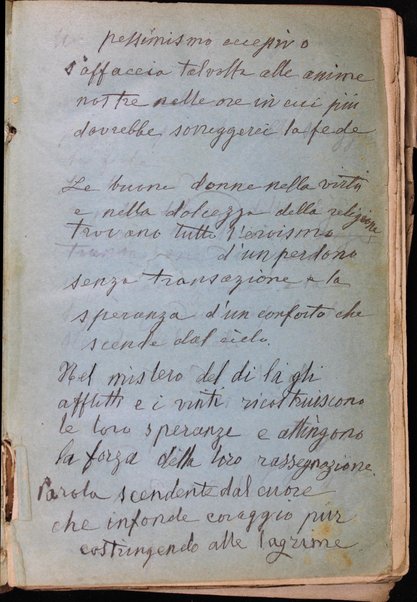 pessimismo eccessivo
s'affaccia talvolta alle anime
nostre nelle ore in cui più
dovrebbe sorreggerci la fede
Le buone donne nella virtù
e nella dolcezza della religione
trovano tutto l'eroismo
d'un perdono
senza transazione e la
speranza d'un conforto che
scende dal cielo.
Nel mistero del di là gli
afflitti e i vinti ricostruiscono
le loro speranze e attingono
la forza della loro rassegnazione.
Parola scendente dal cuore
che infonde coraggio pur
costringendo alle lagrime